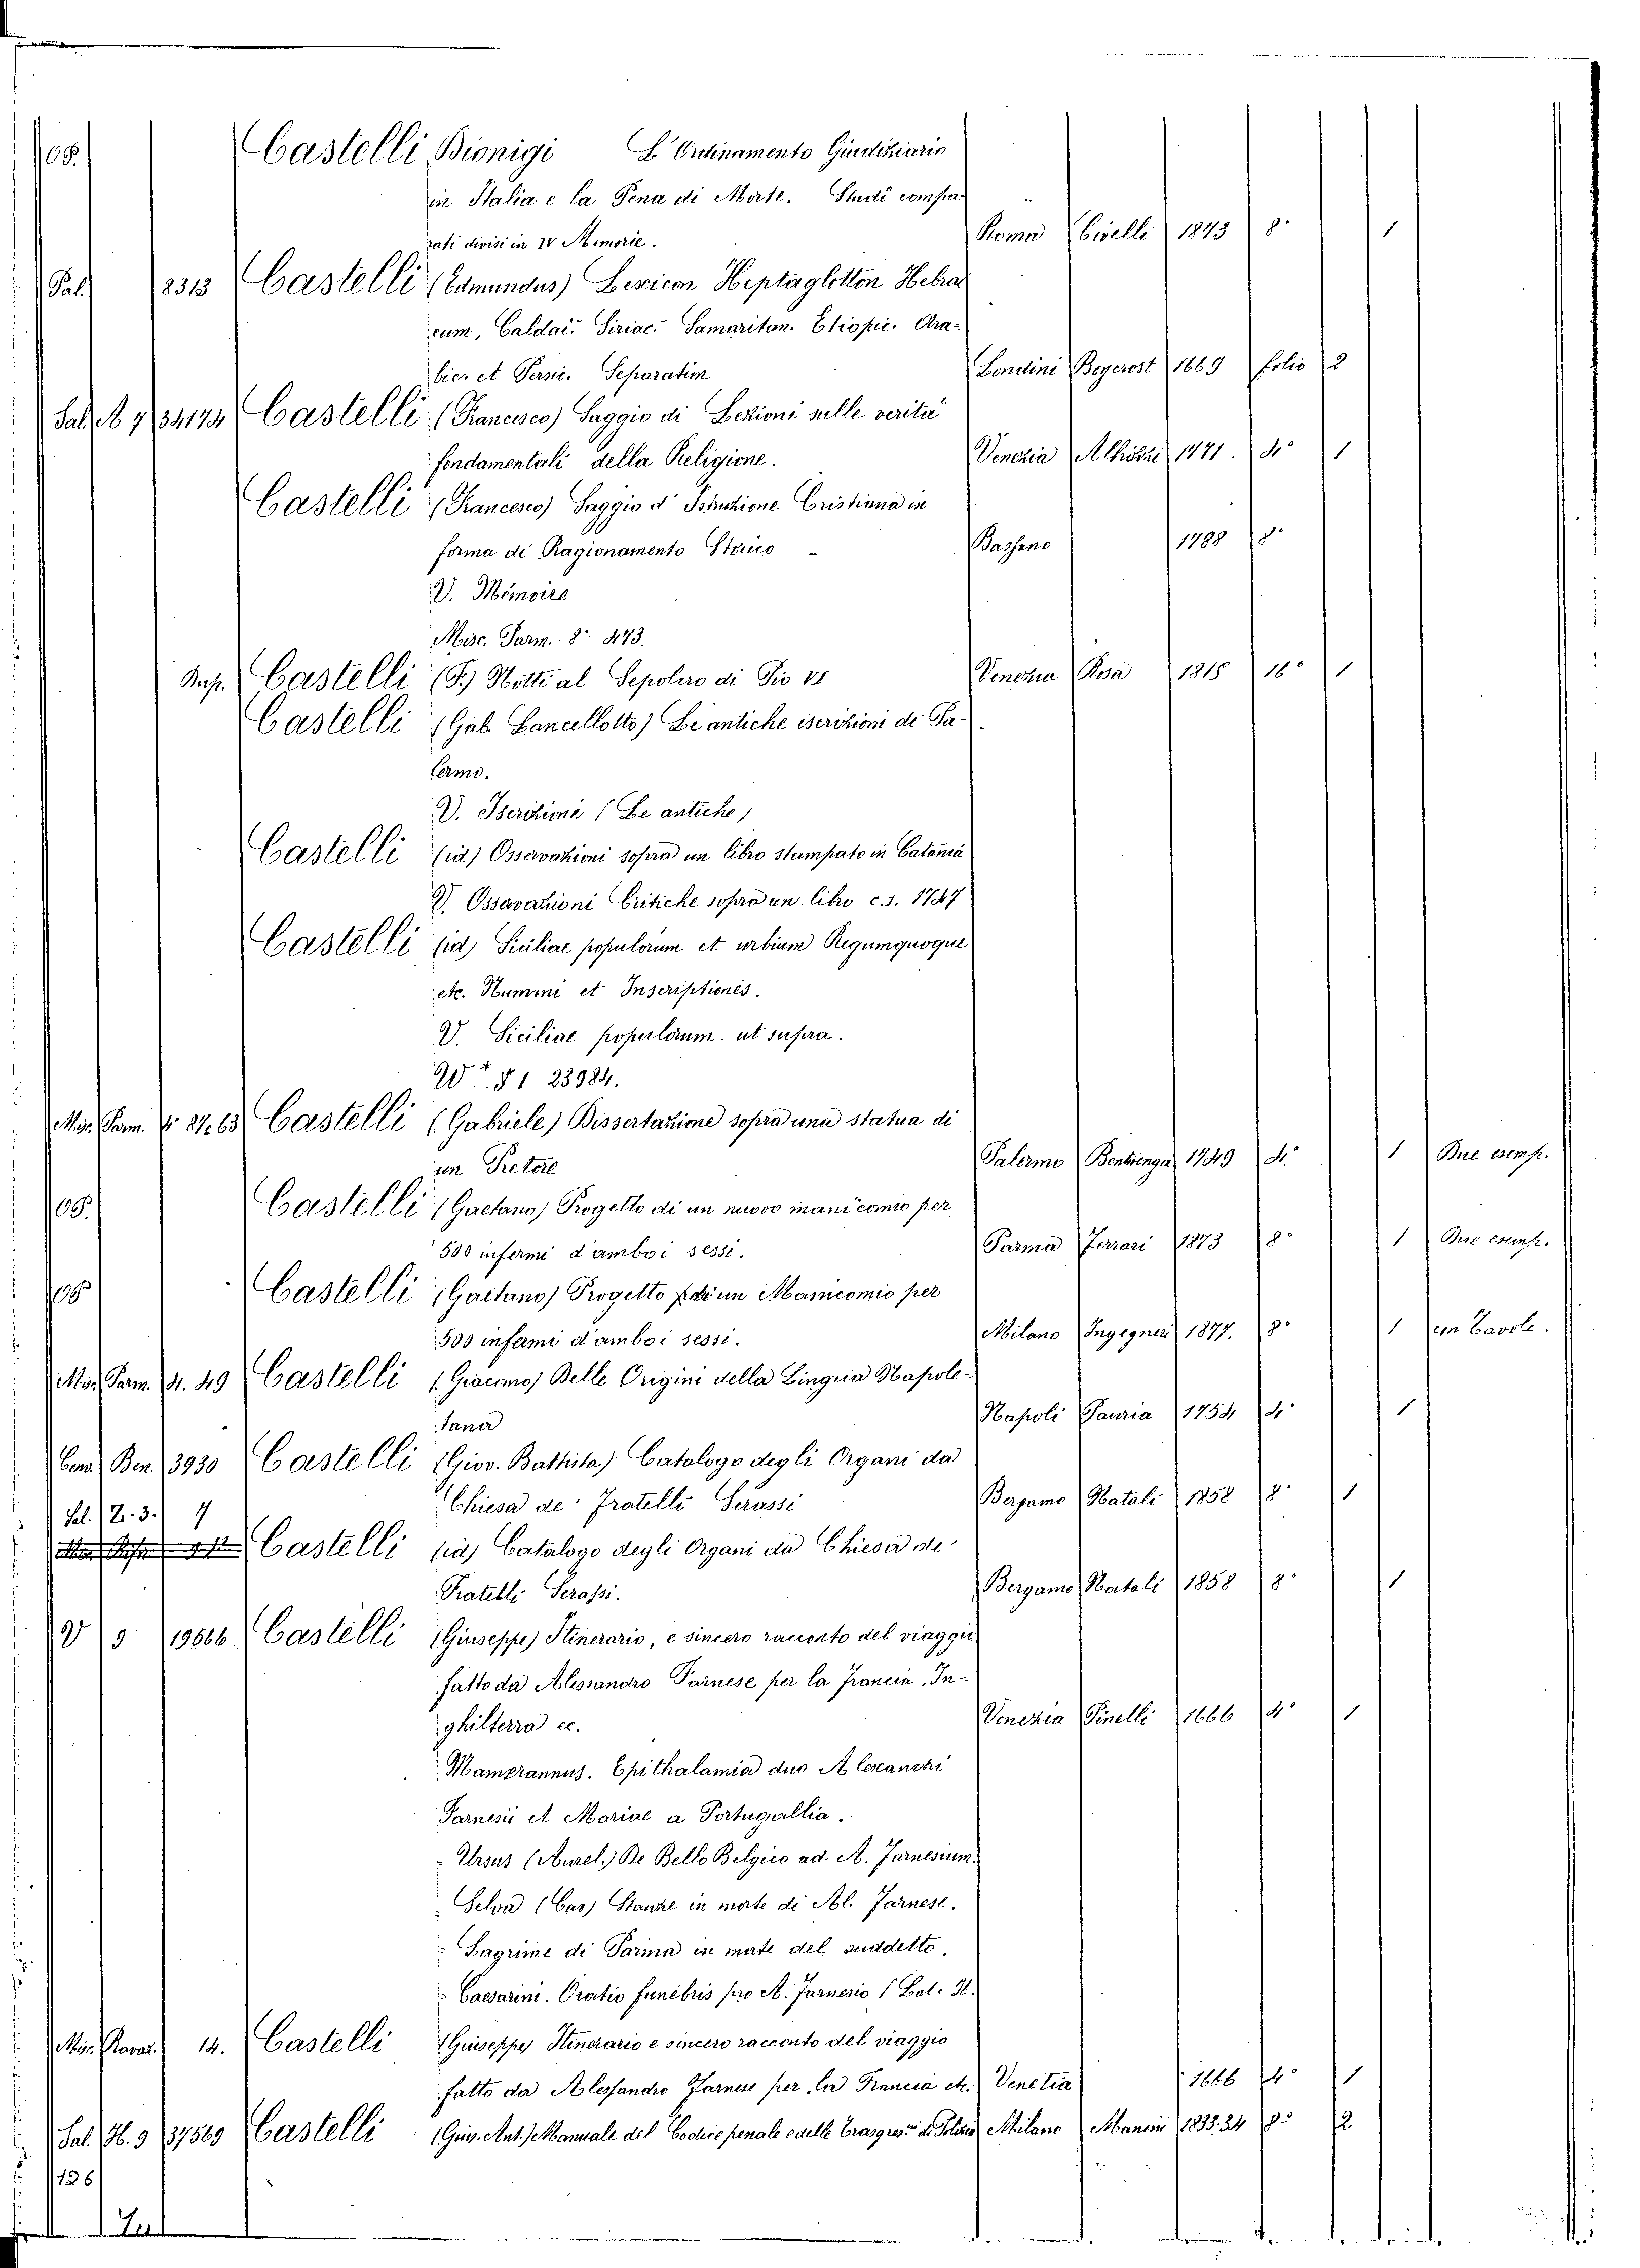 108. Castelli Dionigi L'Ordinamento Giudiziario
in Italia e la Pena di Morte. Studi compa-
rati divisi in IV Memorie. Roma Civelli 1873 8° 1
Pal. 8313 Castelli (Edmundus) Lexicon Heptaglotton Hebrai
cum, Caldai. Siriac. Samaritan. Etiopic. Ara-
bic. et Persic. Separatim Londini 1669 folio 2
Sal. 34174 Castelli (Francesco) Saggio di Lezioni sulle verità
fondamentali della Religione. Venezia Albrizzi 1771. 4° 1
Castelli (Francesco) Saggio d'Istruzione Cristiana in
forma di Ragionamento Storico - Bassano 1788 8°
V. Mémoire
Misc. Parm. 8° 473.
Castelli (F.) Notti al Sepolcro di Pio VI Venezia Rosa 1818 16° 1
Castelli (Gab. Lancellotto) Le antiche iscrizioni di Pa-
lermo.
V. Iscrizioni (Le antiche)
Castelli (id) Osservazioni sopra un libro stampato in Catania
V. Osservazioni Critiche sopra un libro c.s. 1747
Castelli (id) Siciliae populorum et urbium Regumquoque
etc. Nummi et Inscriptiones.
V. Siciliae populorum ut supra.
§ 1 23984.
Mis. Parm. 4° 27.63 Castelli (Gabriele) Dissertazione sopra una statua di
un Pretore Palermo Bentivenga 1749 4. 1 Due esemp.
108. Castelli (Gaetano) Progetto di un nuovo manicomio per
500 infermi d'amboi sessi. Parma Ferrari 1873 8° 1 Due esemp.
108 Castelli (Gaetano) Progetto di un Manicomio per
500 infermi d'amboi sessi. Milano Ingegneri 1877. 8° 1 con Tavole.
Mis. Parm. 4. 49 Castelli (Giacomo) Delle Origini della Lingua Napole-
tana Napoli Pauria 1754 4° 1
Cam. Ben. 3930 Castelli (Giov. Battista) Catalogo degli Organi da
Chiesa de' Fratelli Serassi Bergamo Natali 1858 8° 1
Sal. Z. 3. 7
Castelli (id) Catalogo degli Organi da Chiesa de'
Fratelli Serassi. Bergamo Natali 1858 8° 1
V 9 19666 Castelli (Giuseppe) Itinerario, e sincero racconto del viaggio
fatto da Alessandro Farnese per la Francia, In-
ghilterra ec. Venezia Pinelli 1666 4° 1
Mamerannus. Epithalamia duo Alexandri
Farnesii et Mariae a Portugallia.
- Ursus (Aurel.) De Bello Belgico ad A. Farnesium.
- Selva (Cas) Stanze in morte di Al. Farnese.
- Lagrime di Parma in morte del suddetto.
- Caesarini. Oratio funebris pro A. Farnesio
14. Castelli (Giuseppe) Itinerario e sincero racconto del viaggio
fatto da Alessandro Farnese per la Francia etc. Venetia 1666 4° 1
Sal. H. 9 37569 Castelli (Giu. Ant.) Manuale del Codice penale e delle Milano Manini 1833.34 8° 2
126